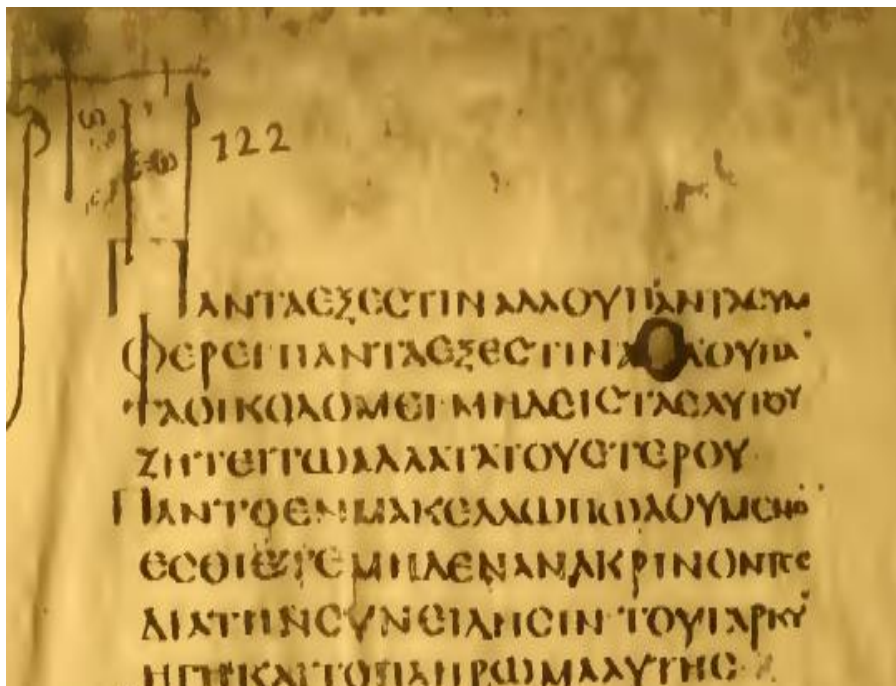 122
ΠΑΝΤΑΕΞΕСΤΙΝΑΛΛΟΥΠΑΝΤΑСΥΜ
ΦΕΡΕΙΠΑΝΤΑΕΞΕСΤΙΝΑΛΛΟΥΠΑ
ΤΑΟΙΚΟΔΟΜΕΙΜΗΔΕΙСΤΑΕΑΥΤΟΥ
ΖΗΤΕΙΤΩΑΛΛΑΤΑΤΟΥΕΤΕΡΟΥ
ΠΑΝΤΟΕΝΜΑΚΕΛΛΩΠΩΛΟΥΜΕΝΟ
ΕСΘΙΕΤΕΜΗΔΕΝΑΝΑΚΡΙΝΟΝΤΕС
ΔΙΑΤΗΝСΥΝΕΙΔΗСΙΝ·ΤΟΥΓΑΡΚΥ
ΗΓΗΚΑΙΤΟΠΛΗΡΩΜΑΑΥΤΗС